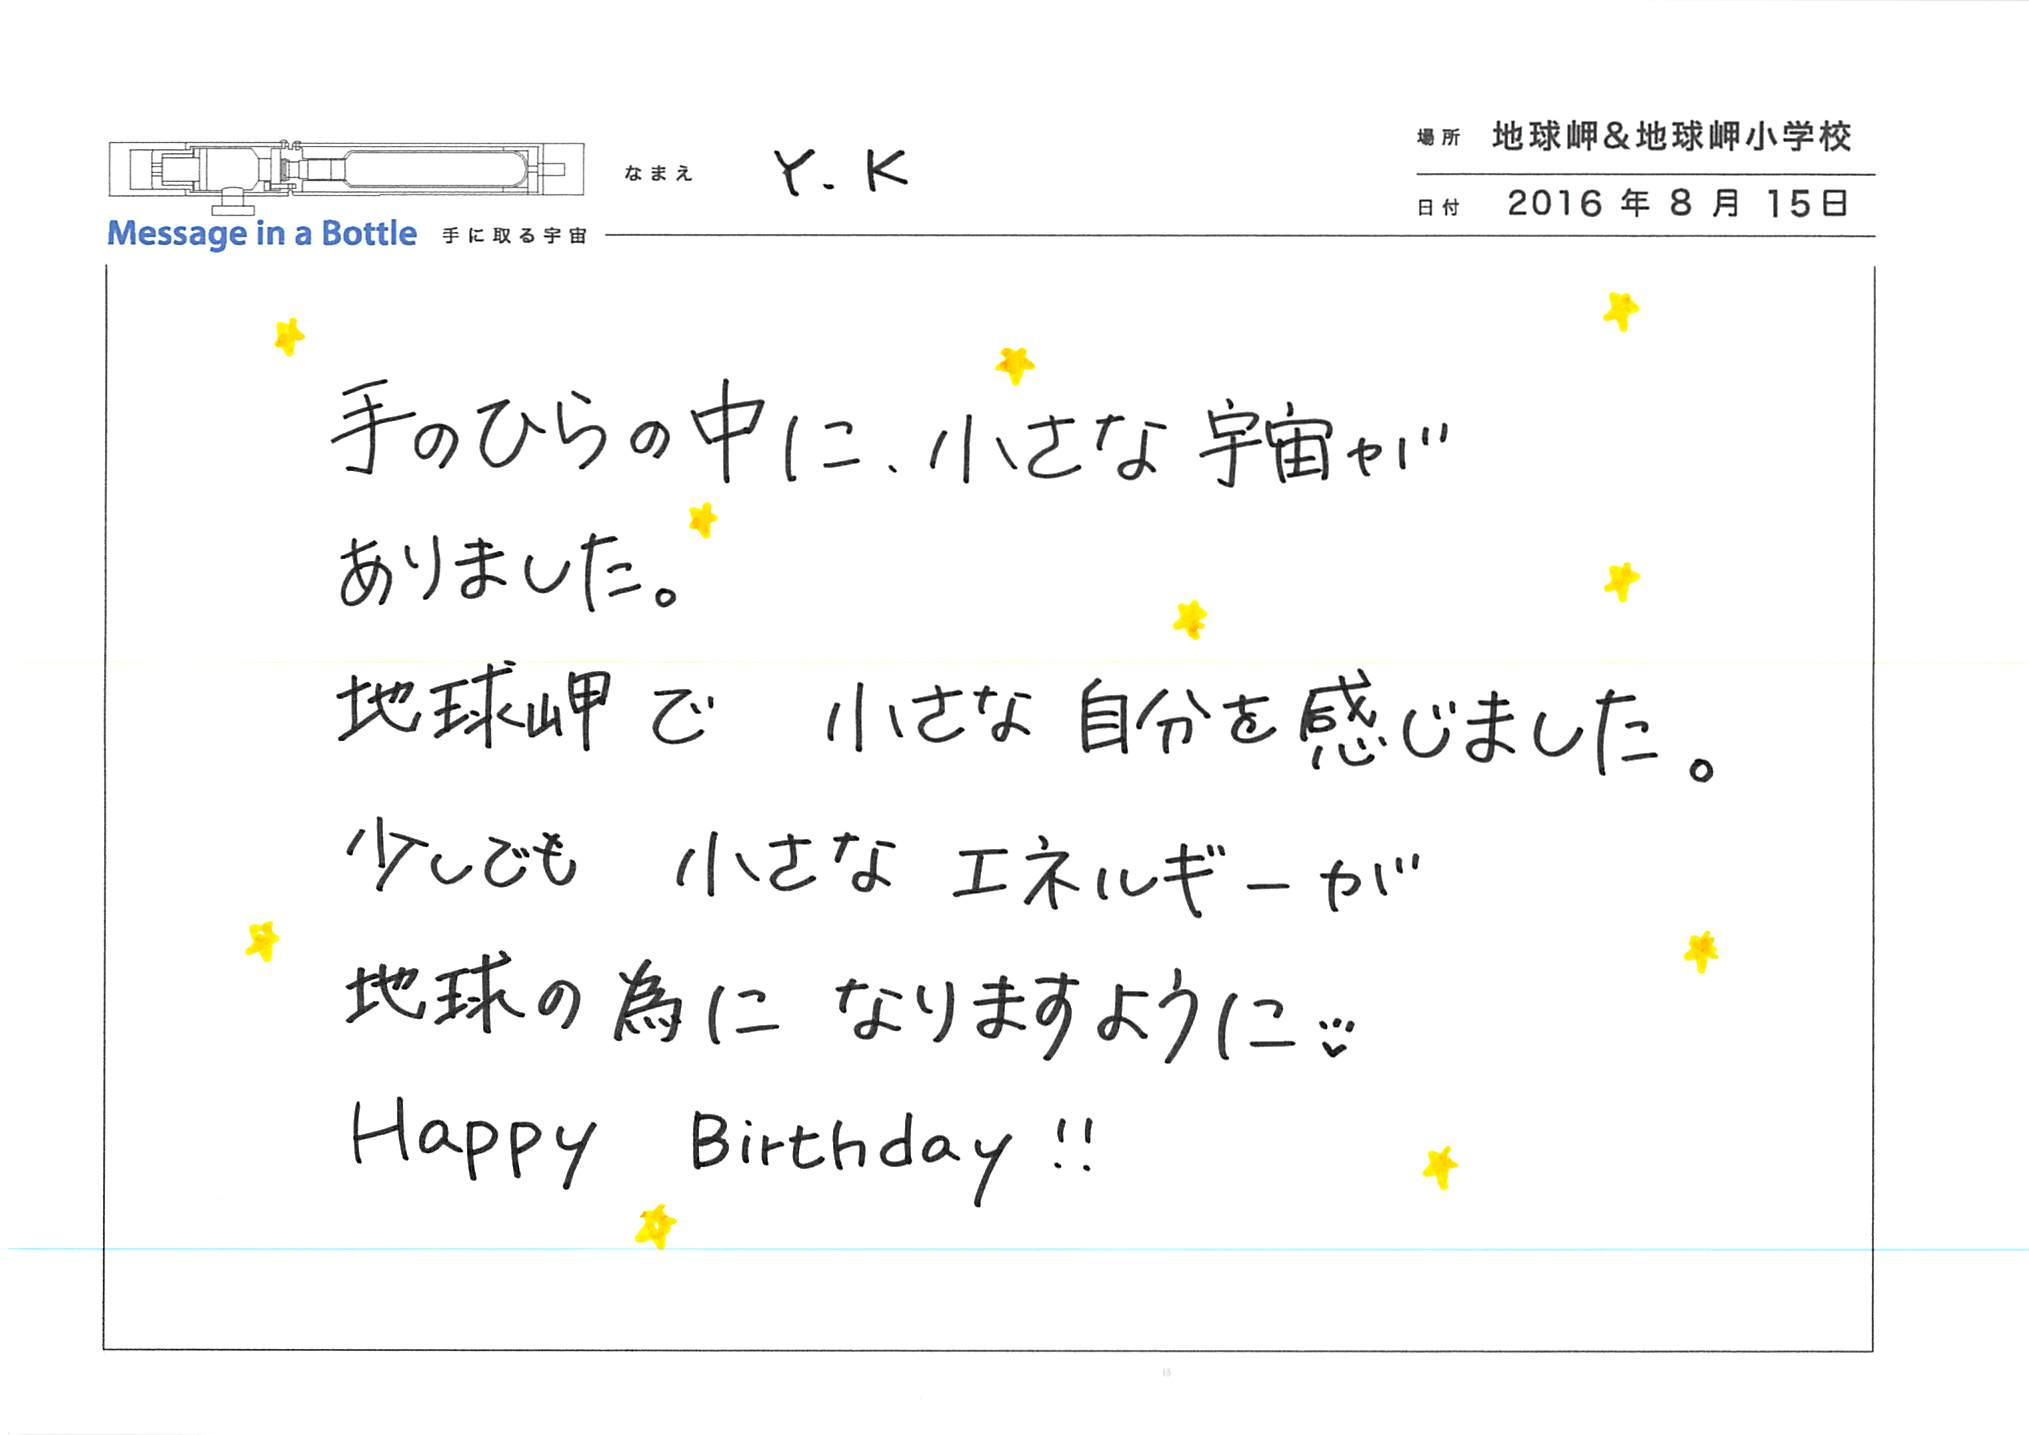 なまえ Y.K
場所 地球岬&地球岬小学校
日付 2016年8月15日
Message in a Bottle 手に取る宇宙
手のひらの中に、小さな宇宙が
ありました。
地球岬で 小さな自分を感じました。
少しでも 小さな エネルギーが
地球の為に なりますように
Happy Birthday!!